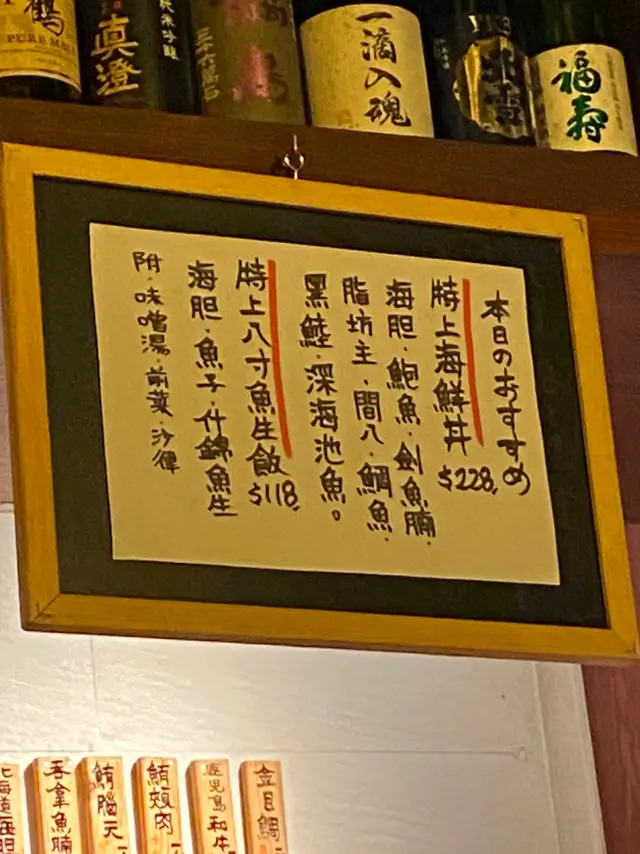 鶴
PURE MAL
真澄
純米吟醸
一滴入魂
福寿
本日のおすすめ
特上海鮮丼 $228,
海胆·鮑魚·劍魚腩·
脂坊主·間八·鯛魚·
黑鮭·深海池魚。
特上八寸魚生飯 $118,
海胆·魚子·什錦魚生
附·味噌湯·前菜·沙律
北海道海胆
吞拿魚腩
鮪腦天
鮪頰肉
鹿児島和牛
金目鯛